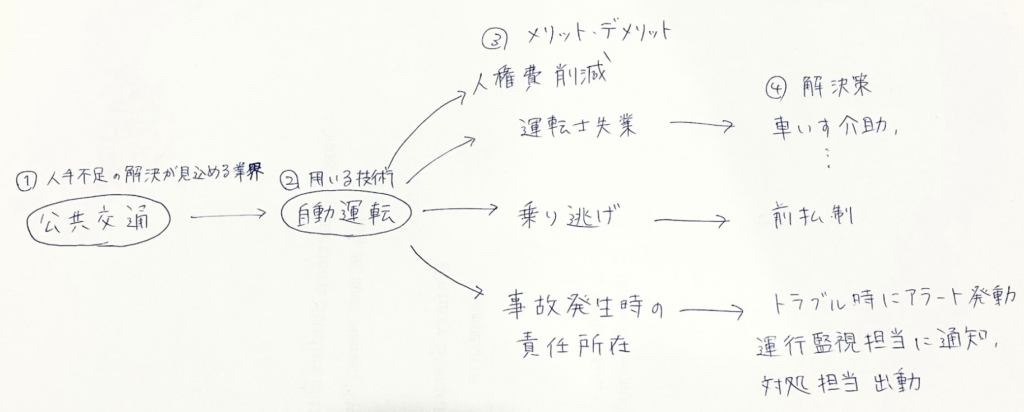 ③ メリット・デメリット
人権費削減
④ 解決策
運転士失業
車いす介助,
⋮
① 人手不足の解決が見込める業界
② 用いる技術
公共交通
自動運転
乗り逃げ
前払制
事故発生時の
責任所在
トラブル時にアラート発動
運行監視担当に通知,
対処担当出動